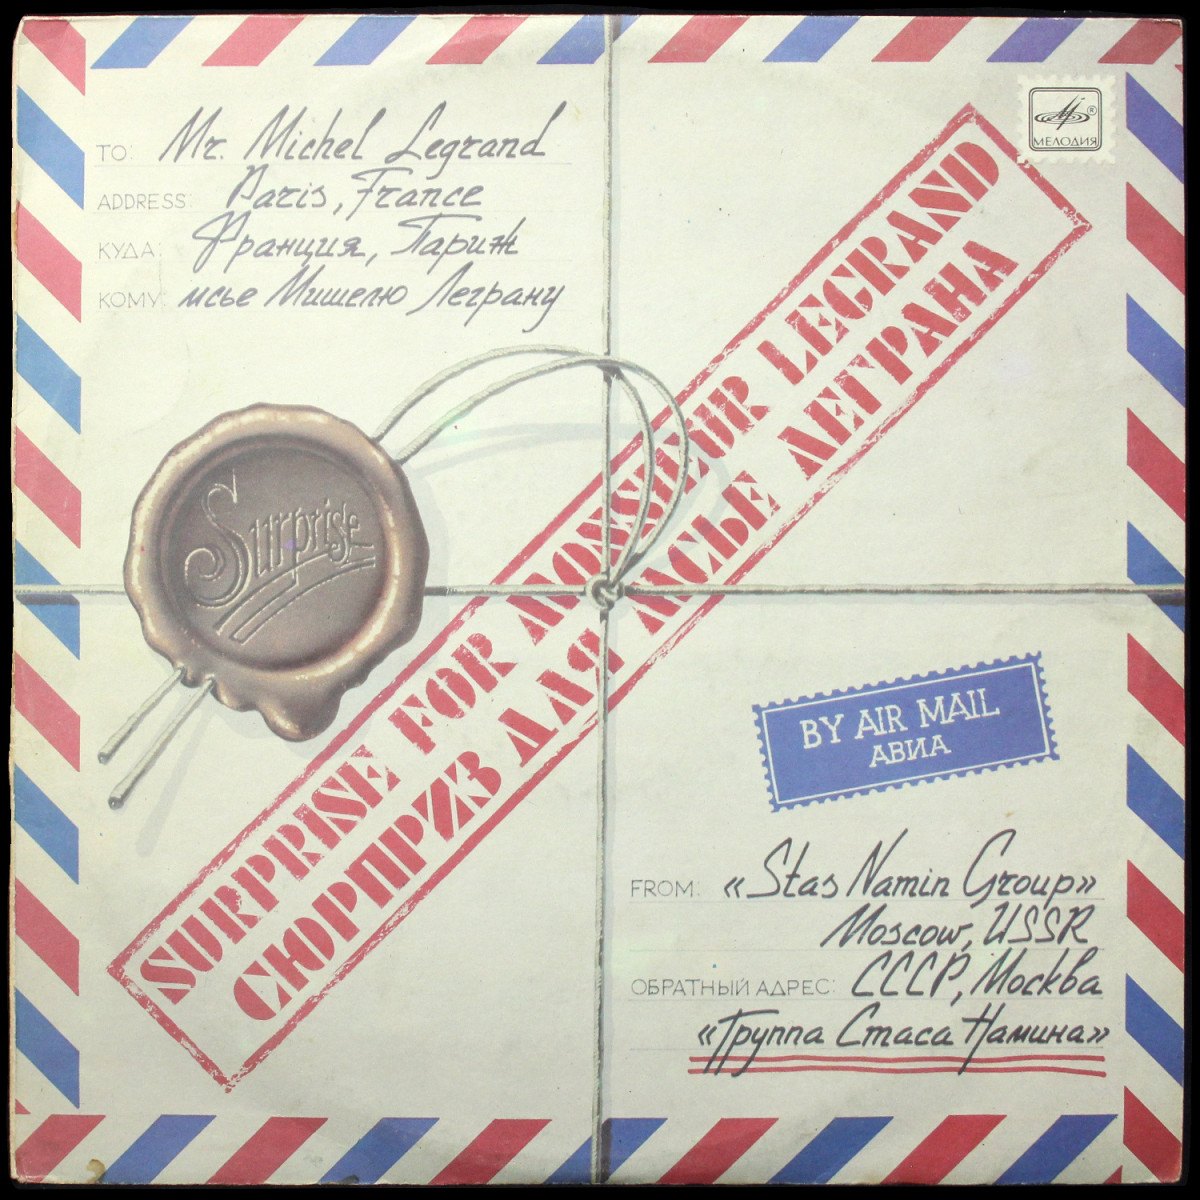 TO: Mr. Michel Legrand
ADDRESS: Paris, France
КУДА: Франция, Париж
КОМУ: мсье Мишелю Леграну
® МЕЛОДИЯ
SURPRISE FOR MONSIEUR LEGRAND
СЮРПРИЗ ДЛЯ МСЬЕ ЛЕГРАНА
Surprise
BY AIR MAIL
АВИА
FROM: «Stas Namin Group»
Moscow, USSR
ОБРАТНЫЙ АДРЕС: СССР, Москва
«Группа Стаса Намина»